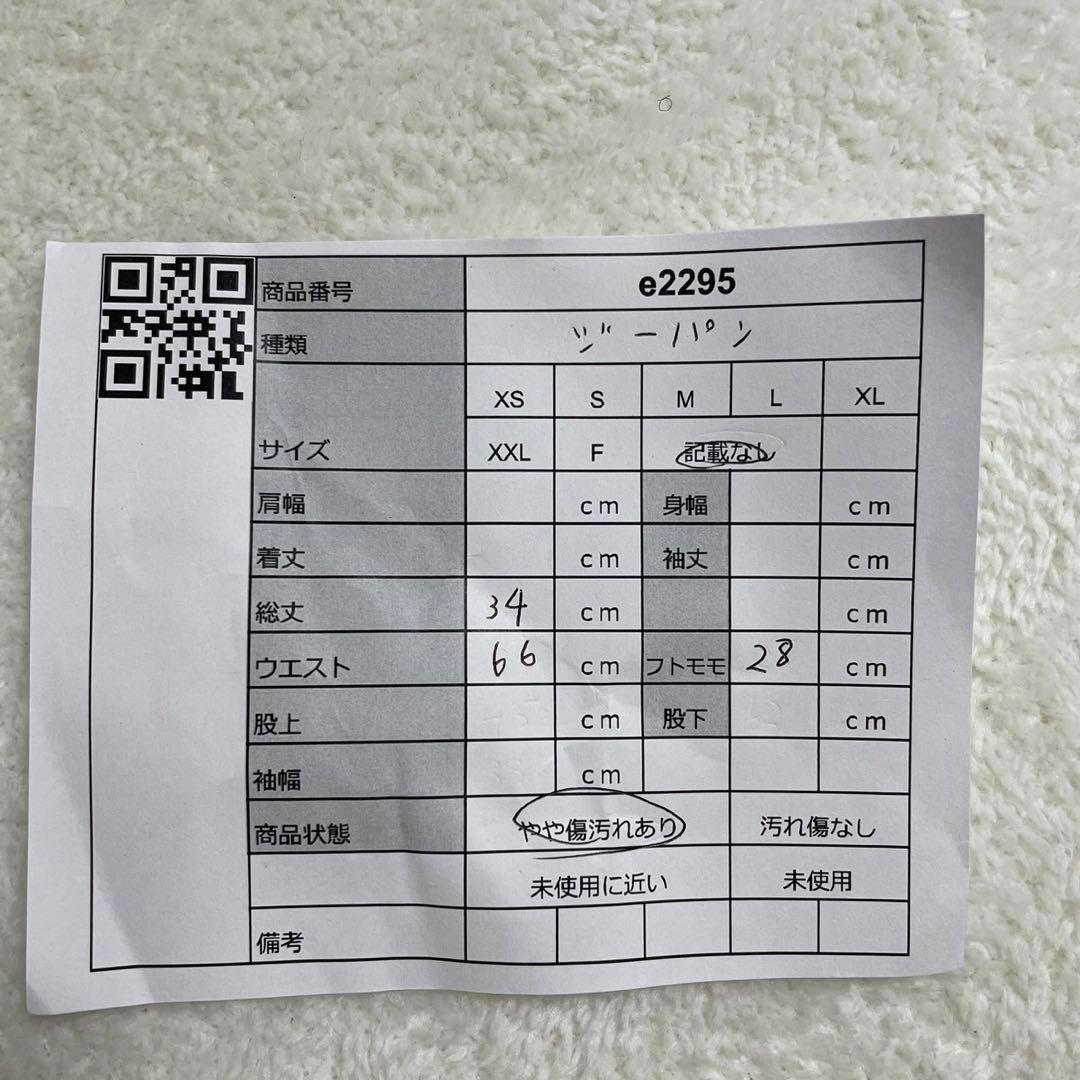 商品番号 e2295
種類 ジーパン
XS S M L XL
サイズ XXL F 記載なし
肩幅 cm 身幅 cm
着丈 cm 袖丈 cm
総丈 34 cm cm
ウエスト 66 cm フトモモ 28 cm
股上 cm 股下 cm
袖幅 cm
商品状態 やや傷汚れあり 汚れ傷なし
未使用に近い 未使用
備考